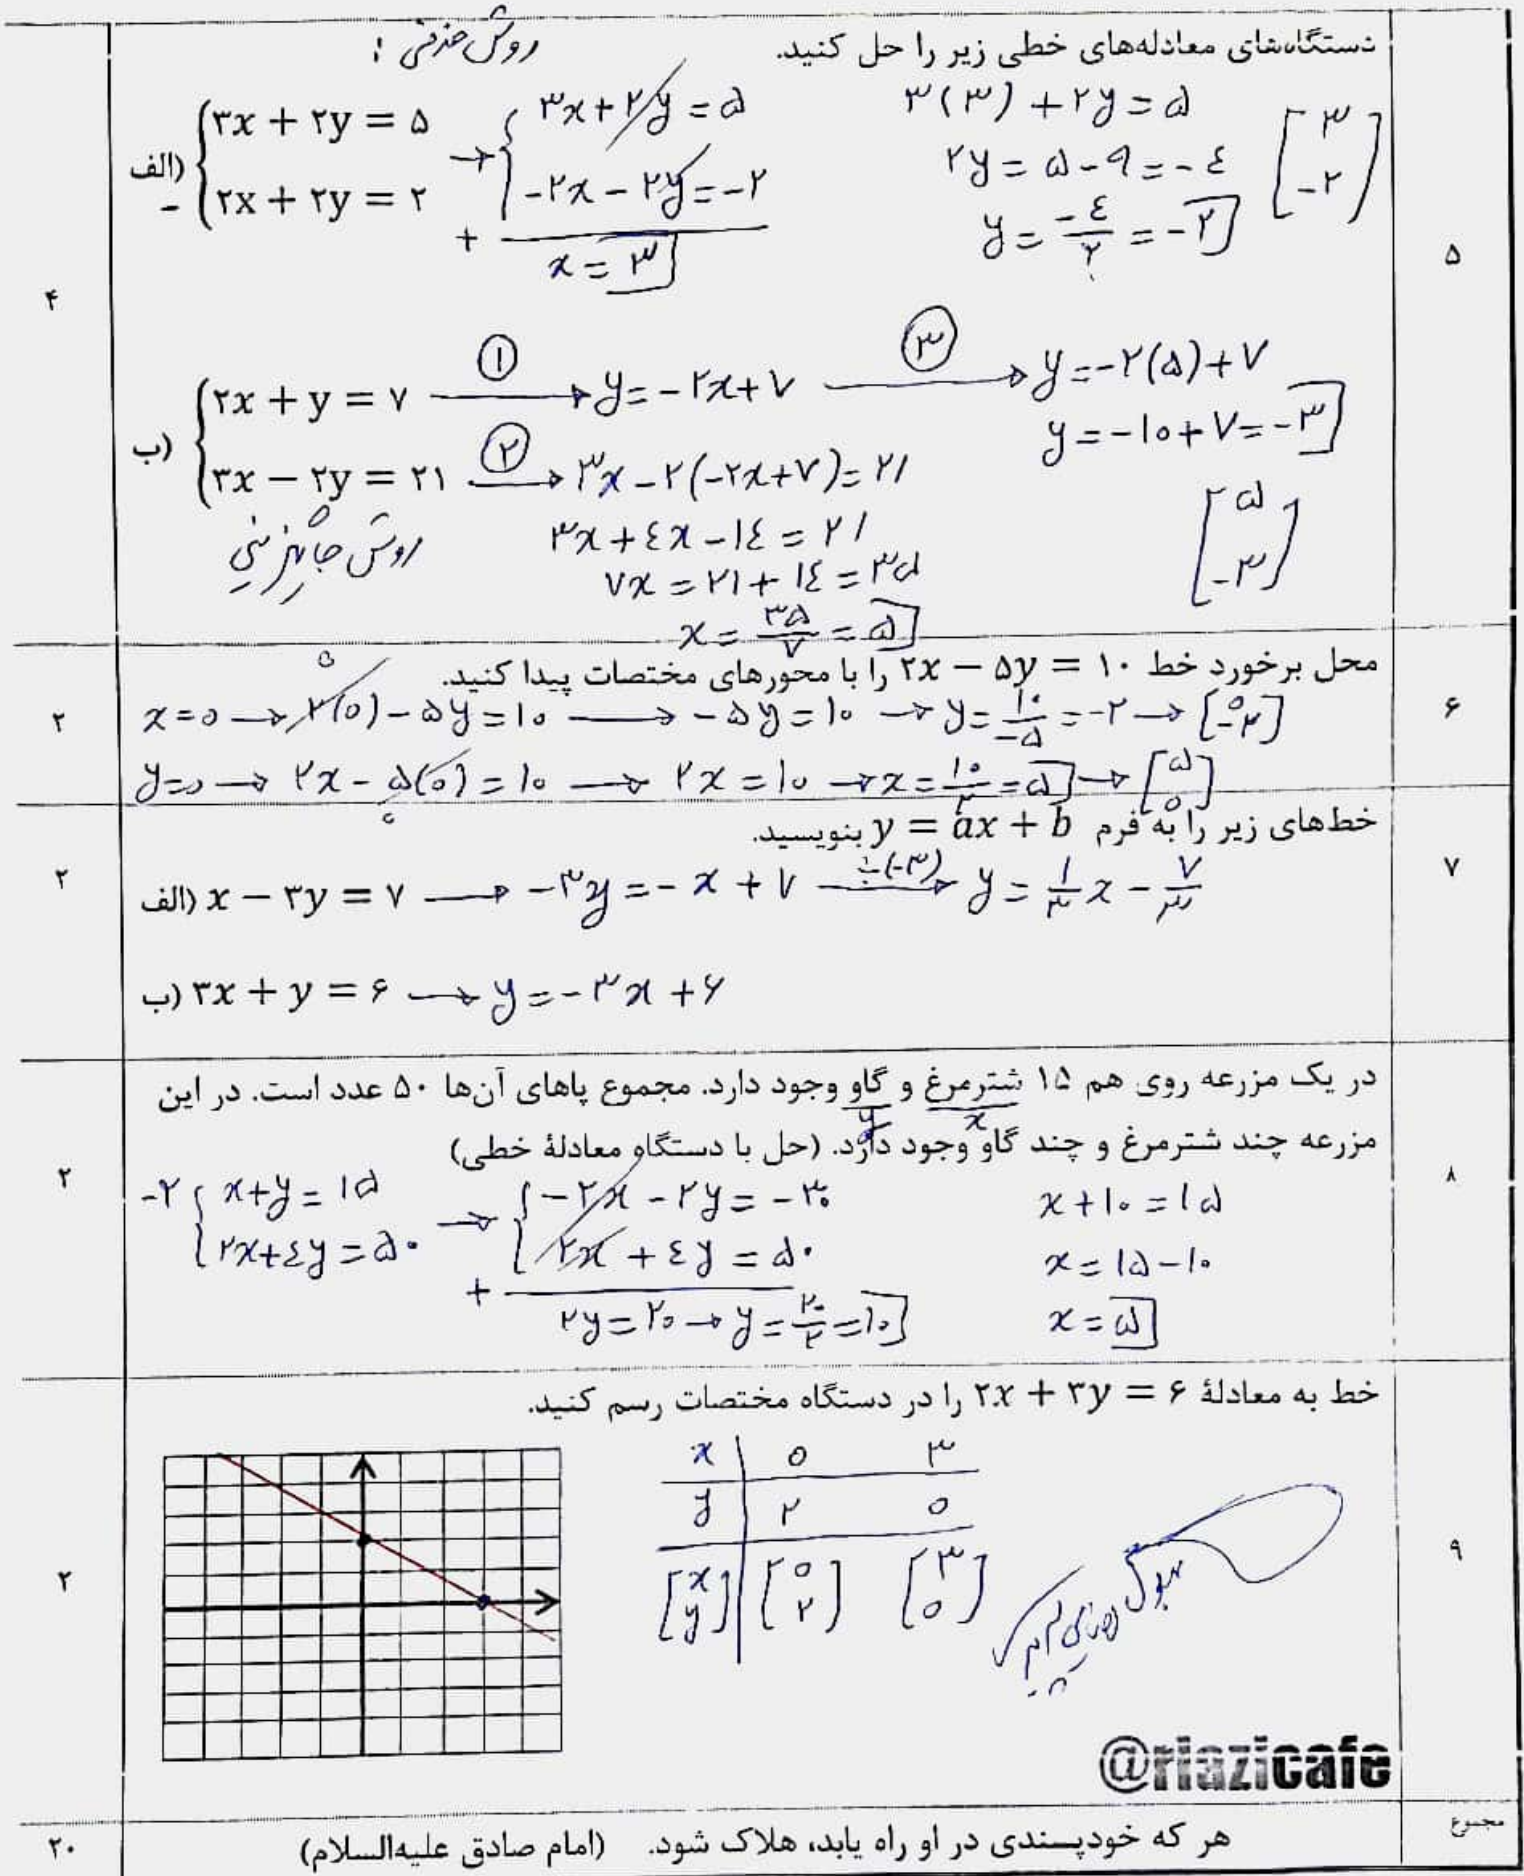 دستگاه‌های معادله‌های خطی زیر را حل کنید. روش حذفی :
۵
۴
الف) {۳x + ۲y = ۵ → {۳x + ۲y = ۵ ۳(۳) + ۲y = ۵ [۳
- {۲x + ۲y = ۲ {-۲x - ۲y = -۲ ۲y = ۵ - ۹ = -۴ -۲]
+ x = ۳ y = -۴/۲ = -۲
ب) {۲x + y = ۷ ① → y = -۲x + ۷ ③ → y = -۲(۵) + ۷
y = -۱۰ + ۷ = -۳
{۳x − ۲y = ۲۱ ② → ۳x - ۲(-۲x + ۷) = ۲۱
روش جایگزینی ۳x + ۴x - ۱۴ = ۲۱ [۵
۷x = ۲۱ + ۱۴ = ۳۵ -۳]
x = ۳۵/۷ = ۵
۶
محل برخورد خط ۲x − ۵y = ۱۰ را با محورهای مختصات پیدا کنید.
۲
x = ۰ → ۲(۰) - ۵y = ۱۰ → -۵y = ۱۰ → y = ۱۰/-۵ = -۲ → [۰ -۲]
y = ۰ → ۲x - ۵(۰) = ۱۰ → ۲x = ۱۰ → x = ۱۰/۲ = ۵ → [۵ ۰]
۷
خط‌های زیر را به فرم y = ax + b بنویسید.
۲
الف) x − ۳y = ۷ → -۳y = -x + ۷ ÷(-۳) → y = ۱/۳ x - ۷/۳
ب) ۳x + y = ۶ → y = -۳x + ۶
۸
در یک مزرعه روی هم ۱۵ شترمرغ و گاو وجود دارد. مجموع پاهای آن‌ها ۵۰ عدد است. در این
x y
مزرعه چند شترمرغ و چند گاو وجود دارد. (حل با دستگاه معادلهٔ خطی)
۲
-۲ {x + y = ۱۵ → {-۲x - ۲y = -۳۰ x + ۱۰ = ۱۵
{۲x + ۴y = ۵۰ {۲x + ۴y = ۵۰ x = ۱۵ - ۱۰
+ ۲y = ۲۰ → y = ۲۰/۲ = ۱۰ x = ۵
خط به معادلهٔ ۲x + ۳y = ۶ را در دستگاه مختصات رسم کنید.
۹
۲
x | ۰ ۳
y | ۲ ۰
[x y] | [۰ ۲] [۳ ۰]
@riazicafe
مجموع
هر که خودپسندی در او راه یابد، هلاک شود. (امام صادق علیه‌السلام)
۲۰